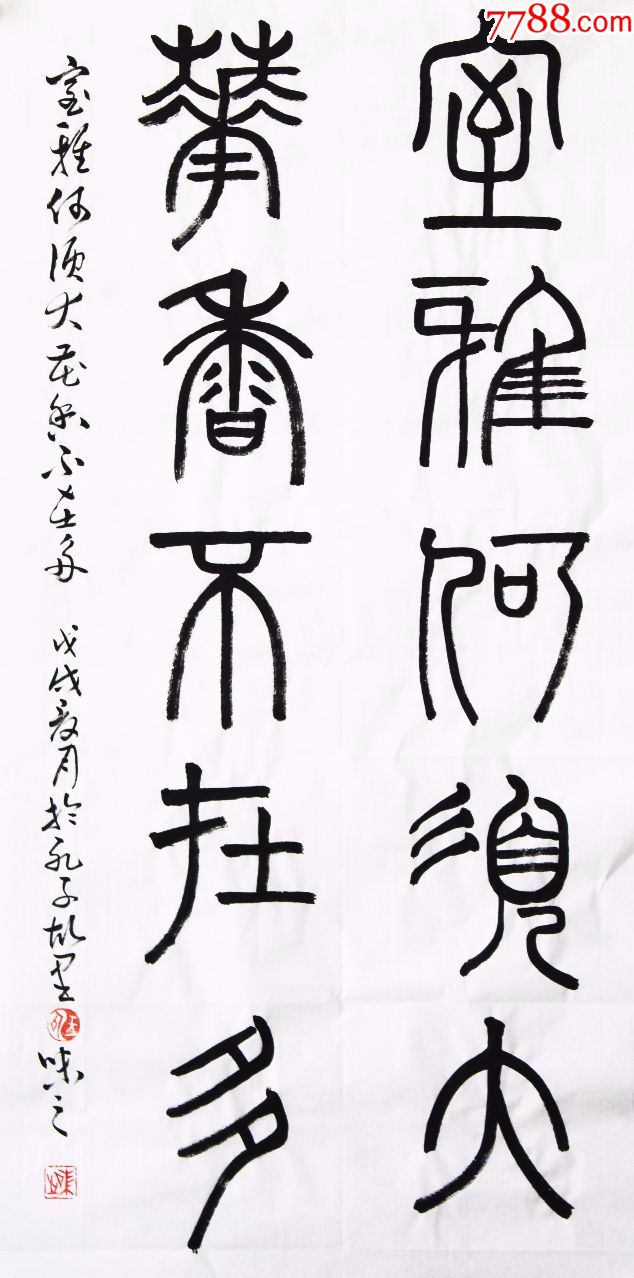 7788.com
室雅何須大
華香不在多
室雅何须大花香不在多 戊戌夏月於孔子故里 味之